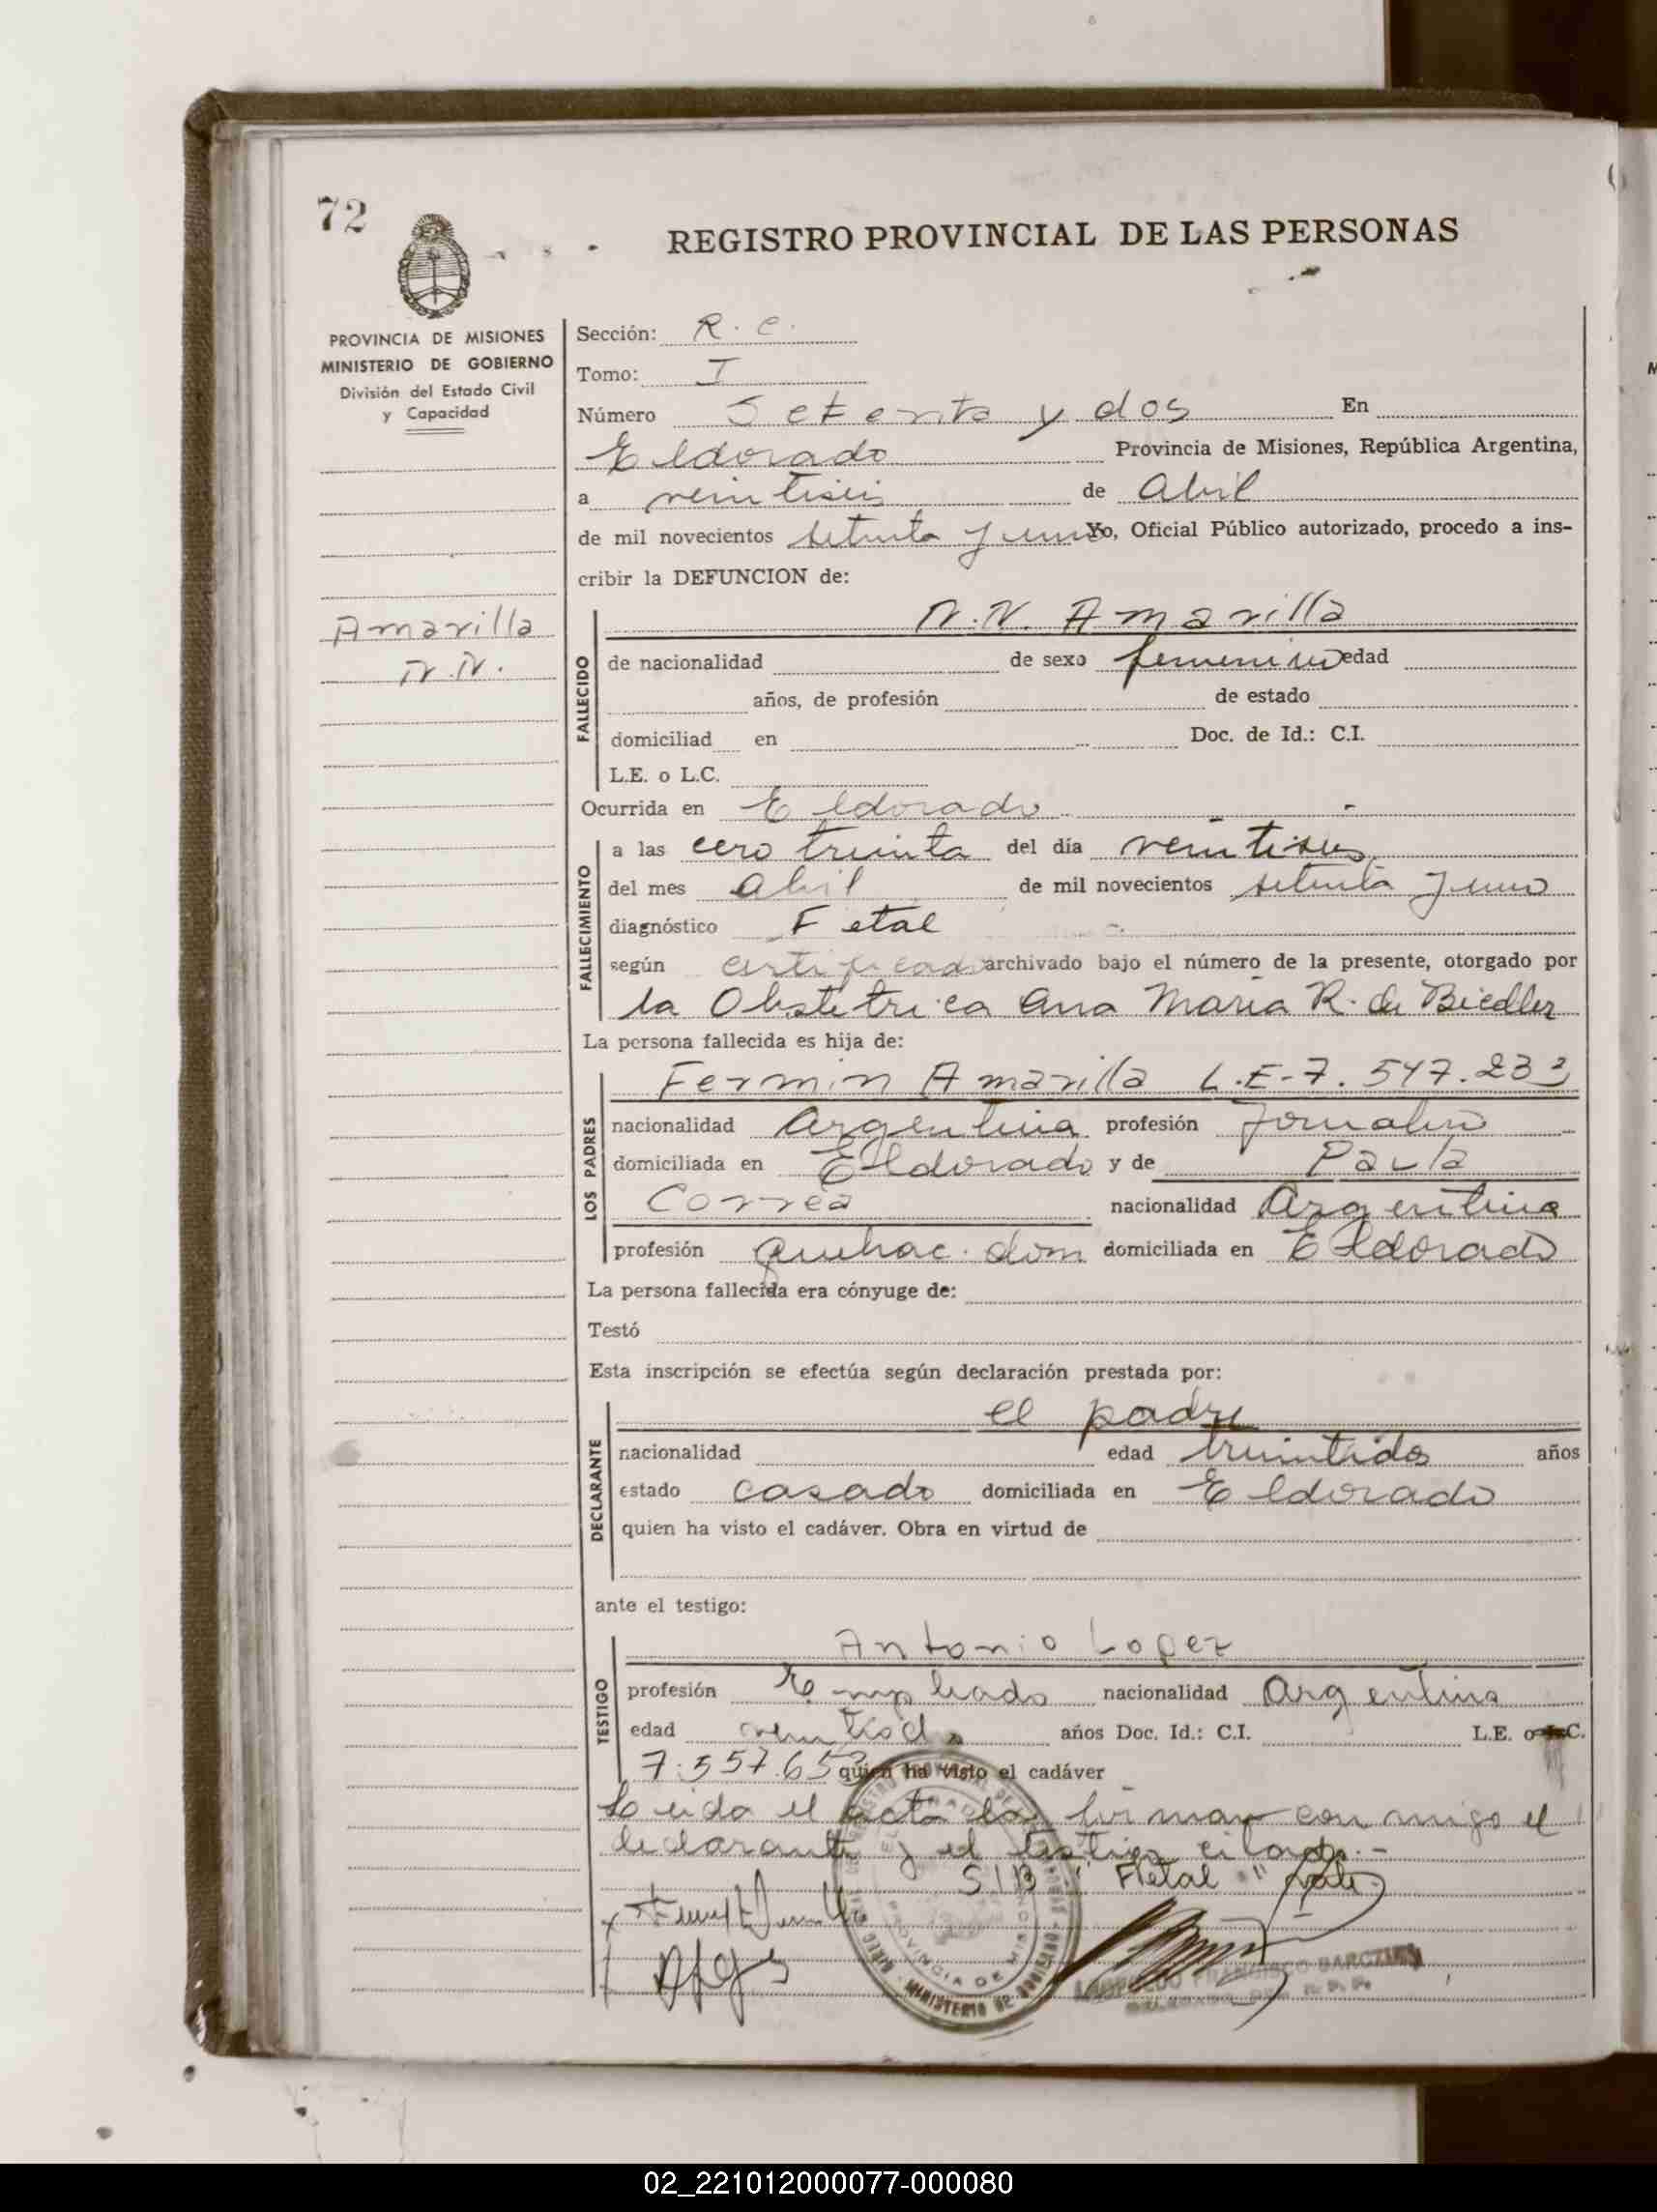 72
REGISTRO PROVINCIAL DE LAS PERSONAS
PROVINCIA DE MISIONES
MINISTERIO DE GOBIERNO
División del Estado Civil
y Capacidad
Sección: R. C.
Tomo: I
Número Setenta y dos En
Eldorado Provincia de Misiones, República Argentina,
a veintiseis de Abril
de mil novecientos setenta y uno Yo, Oficial Público autorizado, procedo a ins-
cribir la DEFUNCION de:
Amarilla
N.N.
FALLECIDO
N.N. Amarilla
de nacionalidad de sexo femenino edad
años, de profesión de estado
domiciliad en Doc. de Id.: C.I.
L.E. o L.C.
Ocurrida en Eldorado
FALLECIMIENTO
a las cero treinta del día veintiseis
del mes abril de mil novecientos setenta y uno
diagnóstico Fetal
según certificado archivado bajo el número de la presente, otorgado por
la Obstetrica Ana Maria R. de Biedler
La persona fallecida es hija de:
LOS PADRES
Fermin Amarilla L.E-7.547.233
nacionalidad Argentina profesión Jornalero
domiciliada en Eldorado y de Paula
Correa nacionalidad Argentina
profesión quehac. dom domiciliada en Eldorado
La persona fallecida era cónyuge de:
Testó
Esta inscripción se efectúa según declaración prestada por:
DECLARANTE
el padre
nacionalidad edad treintidos años
estado casado domiciliada en Eldorado
quien ha visto el cadáver. Obra en virtud de
ante el testigo:
TESTIGO
Antonio Lopez
profesión Empleado nacionalidad Argentina
edad años Doc. Id.: C.I. L.E. o L.C.
7.557.65 quien ha visto el cadáver
Leida el acta la firman conmigo el
declarante y el testigo citado.-
S/B "Fetal" Vale
MINISTERIO DE GOBIERNO
PROVINCIA DE MISIONES
FRANCISCO
02_221012000077-000080